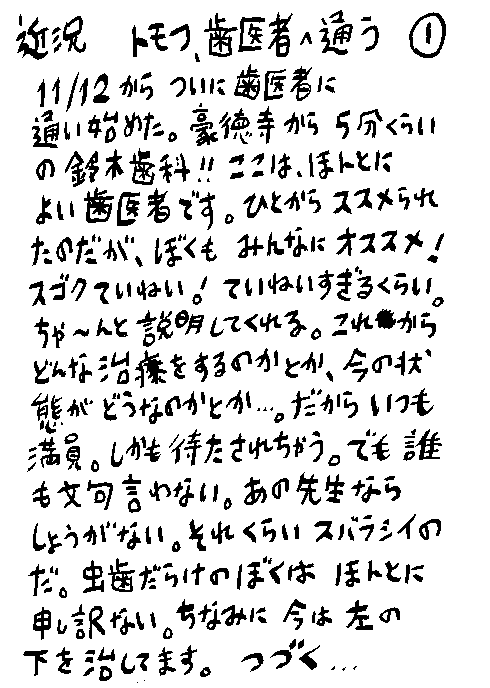 近況 トモフ、歯医者へ通う ①
11/12から ついに歯医者に
通い始めた。豪徳寺から5分くらい
の鈴木歯科!! ここは、ほんとに
よい歯医者です。ひとからススメられ
たのだが、ぼくも みんなにオススメ!
スゴクていねい。! ていねいすぎるくらい。
ちゃ〜んと説明してくれる。これから
どんな治療をするのかとか、今の状
態がどうなのかとか…。だからいつも
満員。しかも待たされちゃう。でも誰
も文句言わない。あの先生なら
しょうがない。それくらいスバラシイの
だ。虫歯だらけのぼくは ほんとに
申し訳ない。ちなみに 今は左の
下を治してます。 つづく…